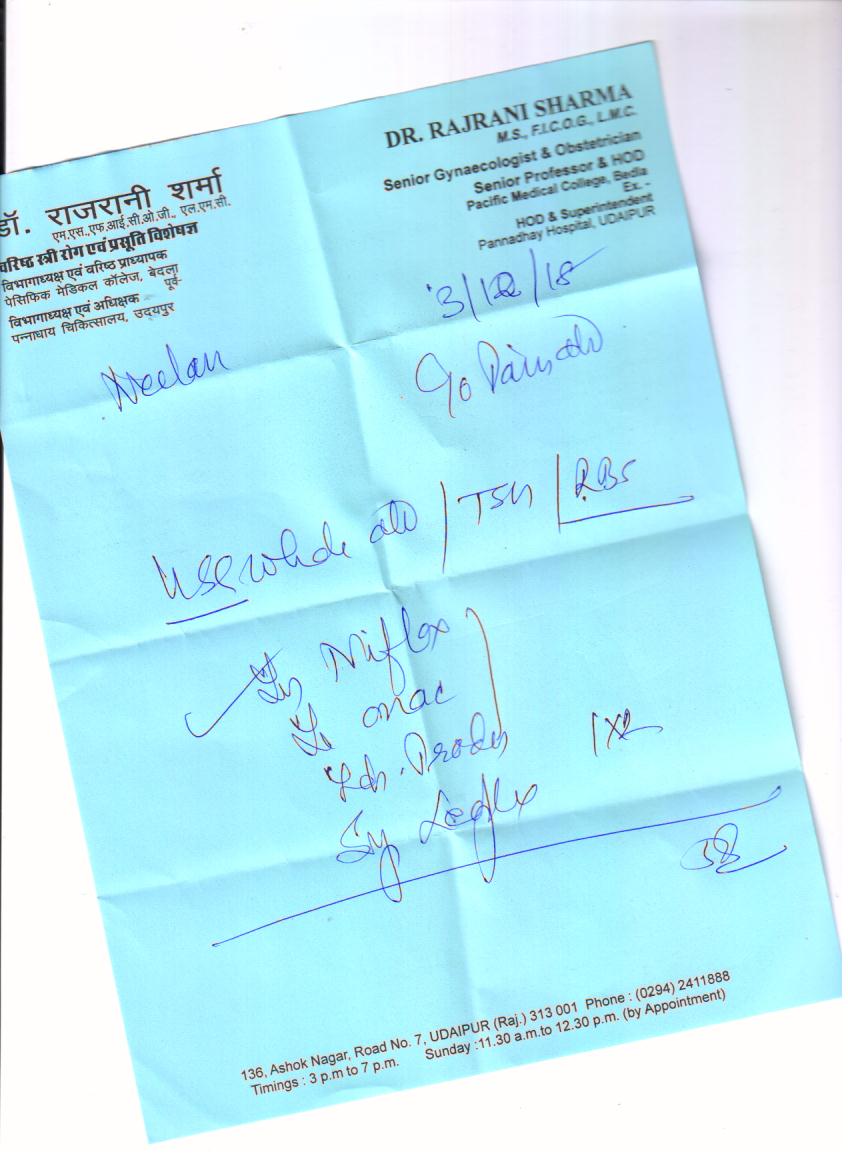 डॉ. राजरानी शर्मा
एम.एस.,एफ.आई.सी.ओ.जी., एल.एम.सी.
वरिष्ठ स्त्री रोग एवं प्रसूति विशेषज्ञ
विभागाध्यक्ष एवं वरिष्ठ प्राध्यापक
पेसिफिक मेडिकल कॉलेज, बेदला
पूर्व-
विभागाध्यक्ष एवं अधिक्षक
पन्नाधाय चिकित्सालय, उदयपुर
DR. RAJRANI SHARMA
M.S., F.I.C.O.G., L.M.C.
Senior Gynaecologist & Obstetrician
Senior Professor & HOD
Pacific Medical College, Bedla
Ex. -
HOD & Superintendent
Pannadhay Hospital, UDAIPUR
3/12/18
Neelam
Pain abd
USG whole abd / TSH / RBS
Niflox
Sy
136, Ashok Nagar, Road No. 7, UDAIPUR (Raj.) 313 001 Phone : (0294) 2411888
Timings : 3 p.m to 7 p.m. Sunday :11.30 a.m.to 12.30 p.m. (by Appointment)